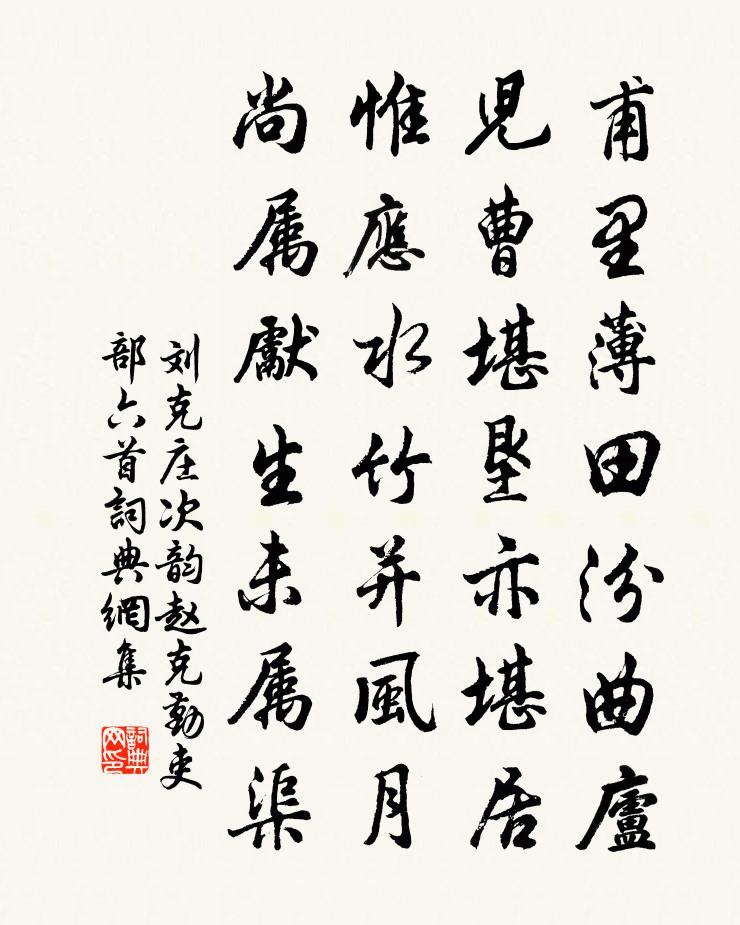 甫里薄田汾曲廬
兒曹堪墾亦堪居
惟應水竹并風月
尚属獻生未属渠
刘克庄次韵赵克勤吏
部六首詞典網集
詞典
网印